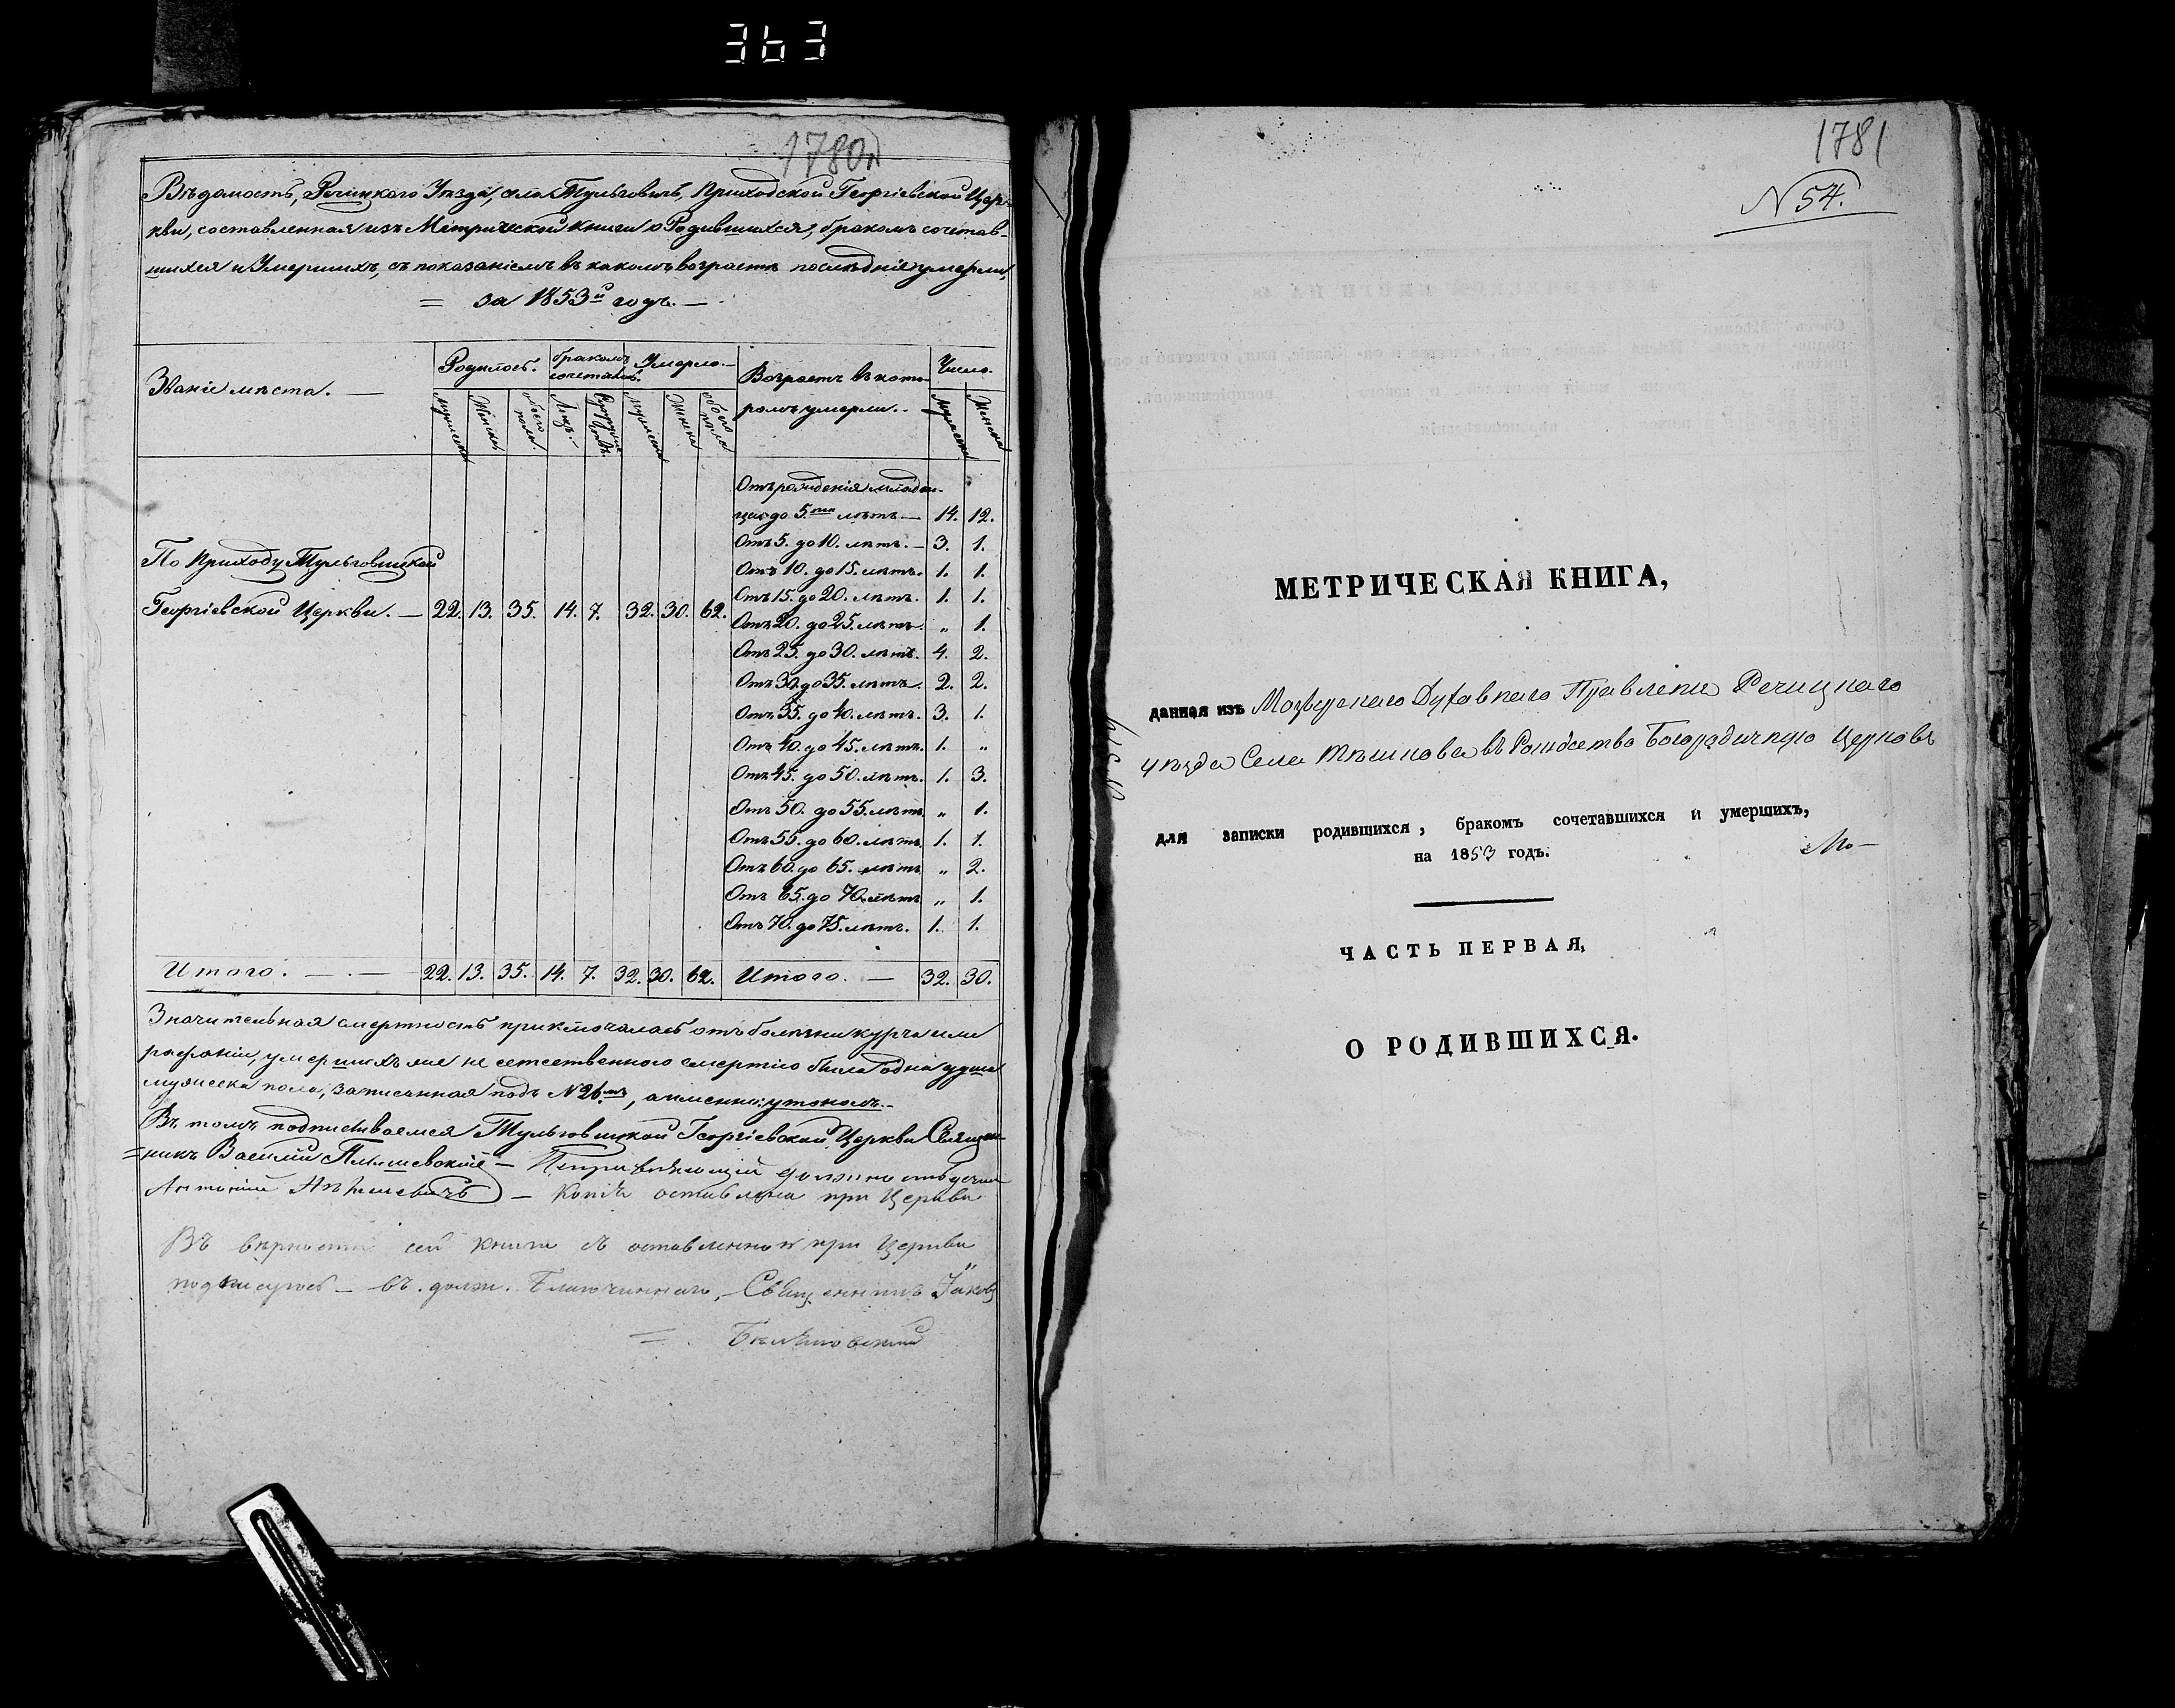 363
1780
Вѣдомость, Речицкаго Уѣзда, села Тульговичь, Приходской Георгіевской Цер-
кви, составленная изъ Метрической книги о Родившихся, бракомъ сочетав-
шихся и Умершихъ, съ показаніемъ въ какомъ возрастѣ послѣдніе умерли,
= за 1853й годъ. —
Званіе мѣста. — Родилось. бракомъ сочетал. Умерло. — Возрастъ въ кото-ромъ умерли. Число.
Мужеска Женска обоего пола. Лицъ. Мужеска Женска обоего пола Мужеска Женска
Отъ рожденія младен-
цевъ до 5ти лѣтъ — 14. 12.
Отъ 5. до 10. лѣтъ. — 3. 1.
По Приходу Тульговицкой
Отъ 10. до 15. лѣтъ. 1. 1.
Отъ 15. до 20. лѣтъ. 1. 1.
Георгіевской Церкви. — 22. 13. 35. 14. 7. 32. 30. 62.
Отъ 20. до 25. лѣтъ. „ 1.
Отъ 25. до 30. лѣтъ. 4. 2.
Отъ 30. до 35. лѣтъ. 2. 2.
Отъ 35. до 40. лѣтъ. 3. 1.
Отъ 40. до 45. лѣтъ. 1. „
Отъ 45. до 50. лѣтъ. 1. 3.
Отъ 50. до 55. лѣтъ „ 1.
Отъ 55. до 60. лѣтъ. 1. 1.
Отъ 60. до 65. лѣтъ „ 2.
Отъ 65. до 70. лѣтъ „ 1.
Отъ 70. до 75. лѣтъ. 1. 1.
Итого. — . — 22. 13. 35. 14. 7. 32. 30. 62. Итого. — 32. 30.
Значительная смертность приключалась отъ болѣзни курча или
рафаніи, умершихъ же не естественною смертію была одна душа
мужеска пола, записанная подъ № 26мъ, а именно: утономъ. —
Въ томъ подписываемся Тульговицкой Георгіевской Церкви Священ-
=никъ Василій — должность
Антоній — Копія оставлена при Церкви
Въ вѣрности сей книги съ оставленной при Церкви
подписуюсь — въ. долж. Благочиннаго, — Священникъ Іаковъ
1781
№ 54.
МЕТРИЧЕСКАЯ КНИГА,
данная изъ Мозырскаго Духовнаго Правленія Речицкаго
уѣзда Села въ Рождество Богородичную Церковь
для записки родившихся, бракомъ сочетавшихся и умершихъ,
на 1853 годъ.
ЧАСТЬ ПЕРВАЯ,
О РОДИВШИХСЯ.